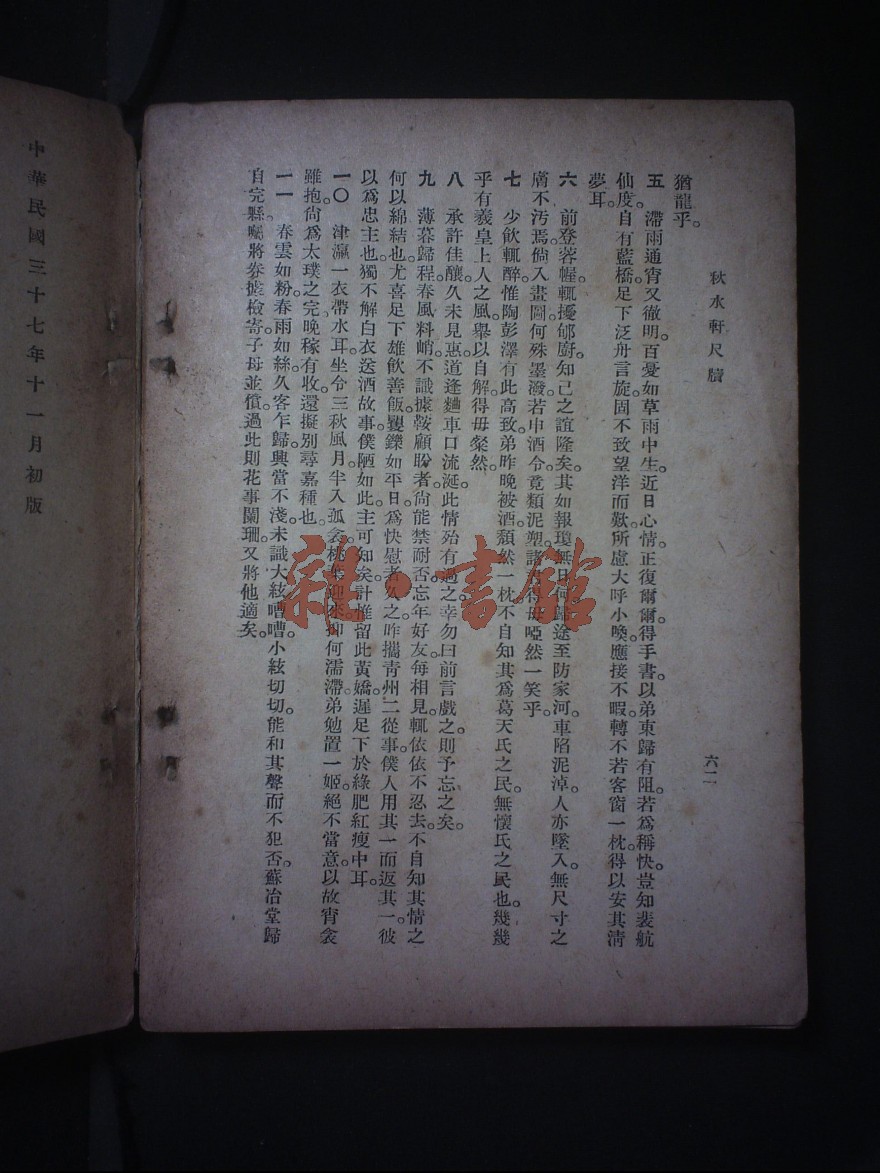 秋水軒尺牘
六二
猶龍乎。
五　滯雨通宵又徹明。百憂如草雨中生。近日心情。正復爾爾。得手書。以弟東歸有阻。若爲稱快。豈知裴航
仙度。自有藍橋。足下泛舟言旋。固不致望洋而歎。所慮大呼小喚。應接不暇。轉不若客窗一枕。得以安其清
夢耳。
六　前登蓉幄。輒擾郇廚。知己之誼隆矣。其如報瓊無日何。歸途至防家河。車陷泥淖。人亦墜入。無尺寸之
膚不污焉。倘入畫圖。何殊墨潑。若申酒令。竟類泥塑。諸 得毋啞然一笑乎。
七　少飲輒醉。惟陶彭澤有此高致。弟昨晚被酒。頹然一枕。不自知其爲葛天氏之民。無懷氏之民也。幾幾
乎有羲皇上人之風。舉以自解。得毋粲然。
八　承許佳釀。久未見惠。道逢麯車口流涎。此情殆有過之。幸勿曰前言戲之。則予忘之矣。
九　薄暮歸程。春風料峭。不識據鞍顧盼者。尙能禁耐否。忘年好友。每相見。輒依依不忍去。不自知其情之
何以綿結也。尤喜足下雄飲善飯。矍鑠如平日。爲快慰者久之。昨攜靑州二從事。僕人用其一而返其一。彼
以爲忠主也。獨不解白衣送酒故事。僕陋如此。主可知矣。計惟留此黃嬌。遲足下於綠肥紅瘦中耳。
一〇　津瀛一衣帶水耳。坐令三秋風月。半入孤衾。桃葉迎來。抑何濡滯。弟勉置一姬。絕不當意。以故宵衾
雖抱。尙爲太璞之完。晚稼有收。還擬別尋嘉種也。
一一　春雲如粉。春雨如絲。久客乍歸。興當不淺。未識大絃嘈嘈。小絃切切。能和其聲而不犯否。蘇冶堂歸
自完縣。囑將券據檢寄。子母並償。過此則花事闌珊。又將他適矣。
中華民國三十七年十一月初版
雜·書館